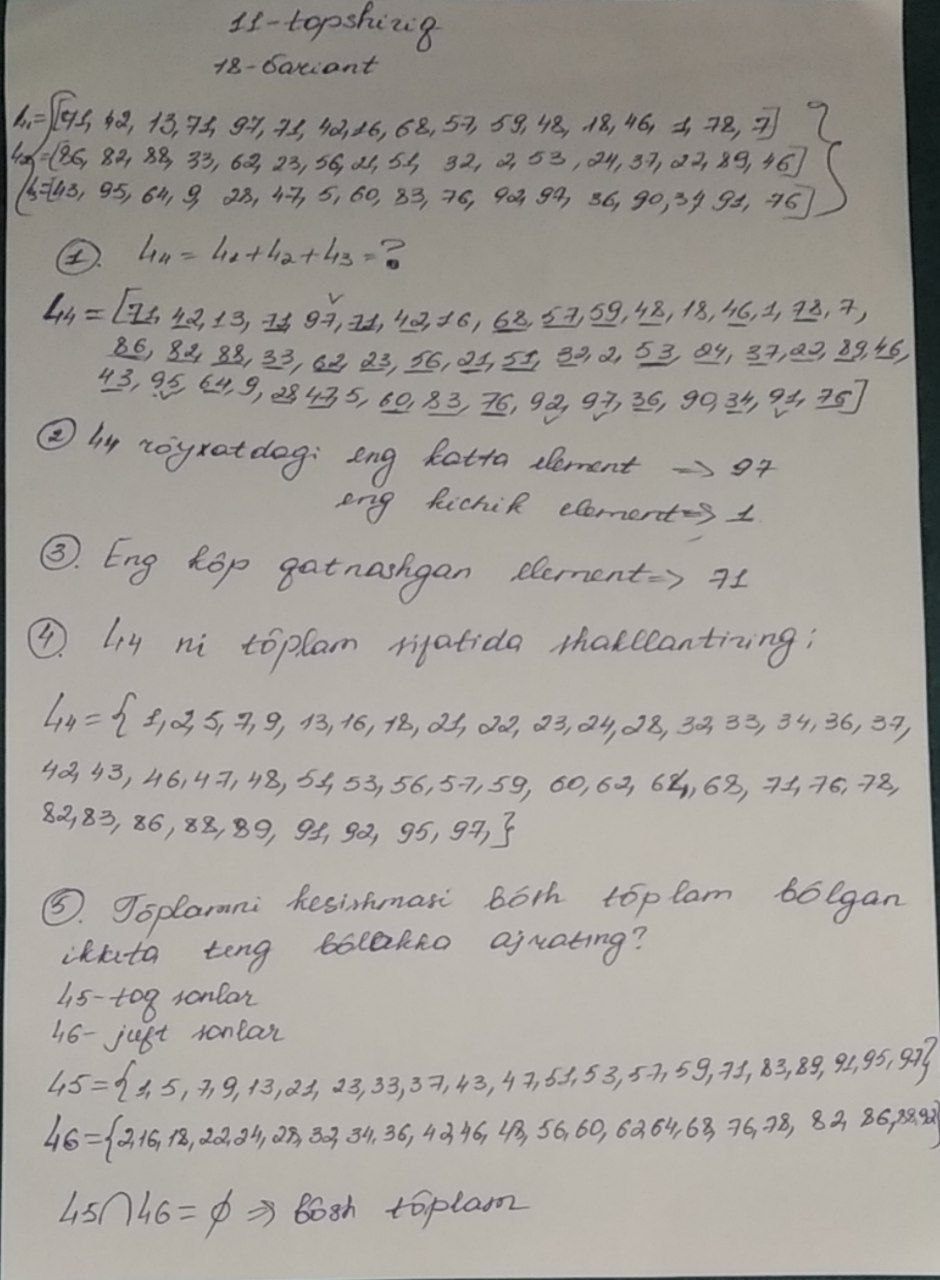 11-topshiriq
18-variant
L1=[71, 42, 13, 71, 97, 71, 42, 16, 68, 57, 59, 48, 18, 46, 1, 78, 7]
L2=[86, 82, 88, 33, 62, 23, 56, 21, 51, 32, 2, 53, 24, 37, 22, 89, 46]
L3=[43, 95, 64, 9, 28, 47, 5, 60, 83, 76, 92, 97, 36, 90, 34, 91, 76]
①. L4 = L1+L2+L3 = ?
L4 = [71, 42, 13, 71, 97, 71, 42, 16, 68, 57, 59, 48, 18, 46, 1, 78, 7,
86, 82, 88, 33, 62, 23, 56, 21, 51, 32, 2, 53, 24, 37, 22, 89, 46,
43, 95, 64, 9, 28 47, 5, 60, 83, 76, 92, 97, 36, 90, 34, 91, 76]
② L4 rôyxatdagi eng katta element => 97
eng kichik element => 1
③. Eng kôp qatnashgan element => 71
④. L4 ni tôplam sifatida shakllantiring;
L4 = { 1, 2, 5, 7, 9, 13, 16, 18, 21, 22, 23, 24, 28, 32, 33, 34, 36, 37,
42, 43, 46, 47, 48, 51, 53, 56, 57, 59, 60, 62, 64, 68, 71, 76, 78,
82, 83, 86, 88, 89, 91, 92, 95, 97, }
⑤. Tôplamni kesishmasi bôsh tôplam bôlgan
ikkita teng bôlakka ajrating?
L5-toq sonlar
L6- juft sonlar
L5={1, 5, 7, 9, 13, 21, 23, 33, 37, 43, 47, 51, 53, 57, 59, 71, 83, 89, 91, 95, 97}
L6={2, 16, 18, 22, 24, 28, 32, 34, 36, 42, 46, 48, 56, 60, 62, 64, 68, 76, 78, 82, 86, 88, 92}
L5∩L6 = ∅ => bôsh tôplam